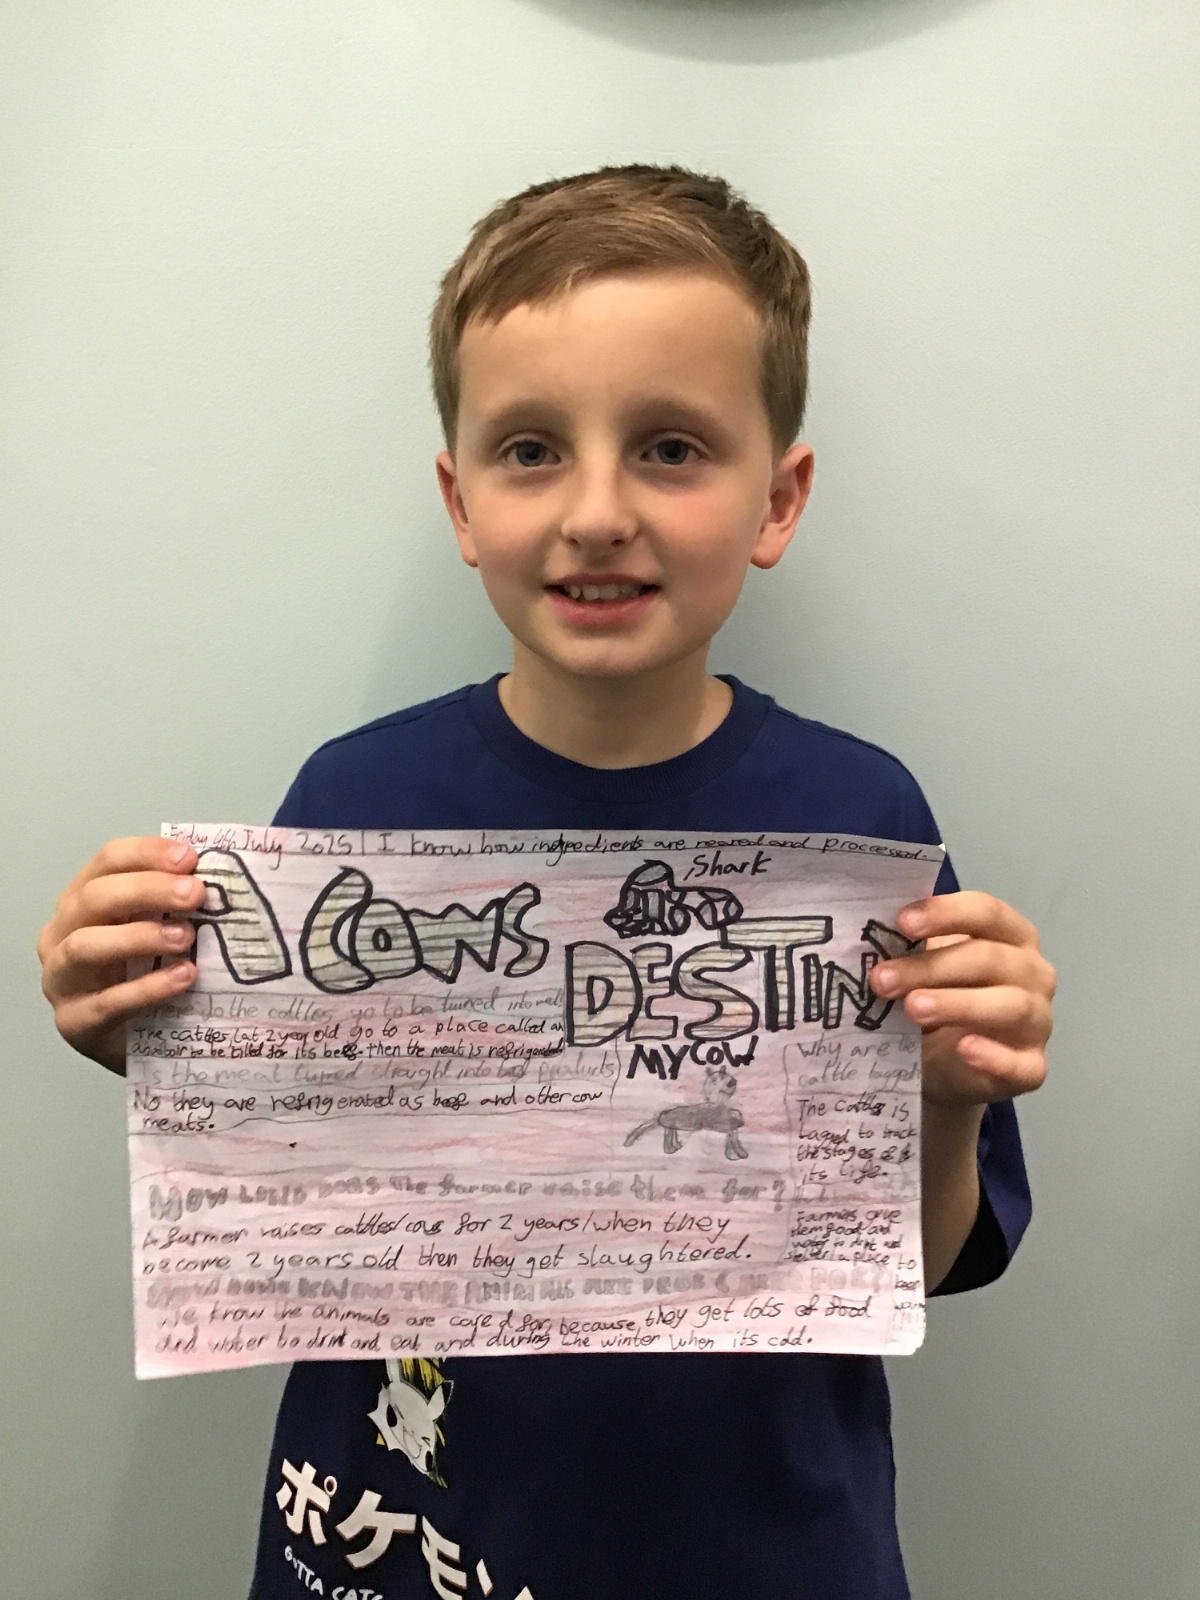 Friday 4th July 2025 | I know how ingredients are reared and proccessed.
A COWS
Shark
DESTINY
MY COW
where do the cattles go to be turned into
The cattles (at 2 year old go to a place called an
abatoir to be killed for its beef. then the meat is refrigerated
Is the meat turned straight into products
No they are refrigerated as beef and other cow
meats.
Why are the
cattle tagged
The cattle is
tagged to track
the stages of
its life.
How long does the farmer raise them for?
A farmer raises cattles/cows for 2 years/when they
become 2 years old then they get slaughtered.
Farmers give
them food and
water to drink and
shelter a place to
keep
warm
HOW DO WE KNOW THE ANIMALS ARE CARED FOR?
We know the animals are cared for, because, they get lots of food
and water to drink and eat and during the winter when its cold.
ポケモン
GOTTA CATC